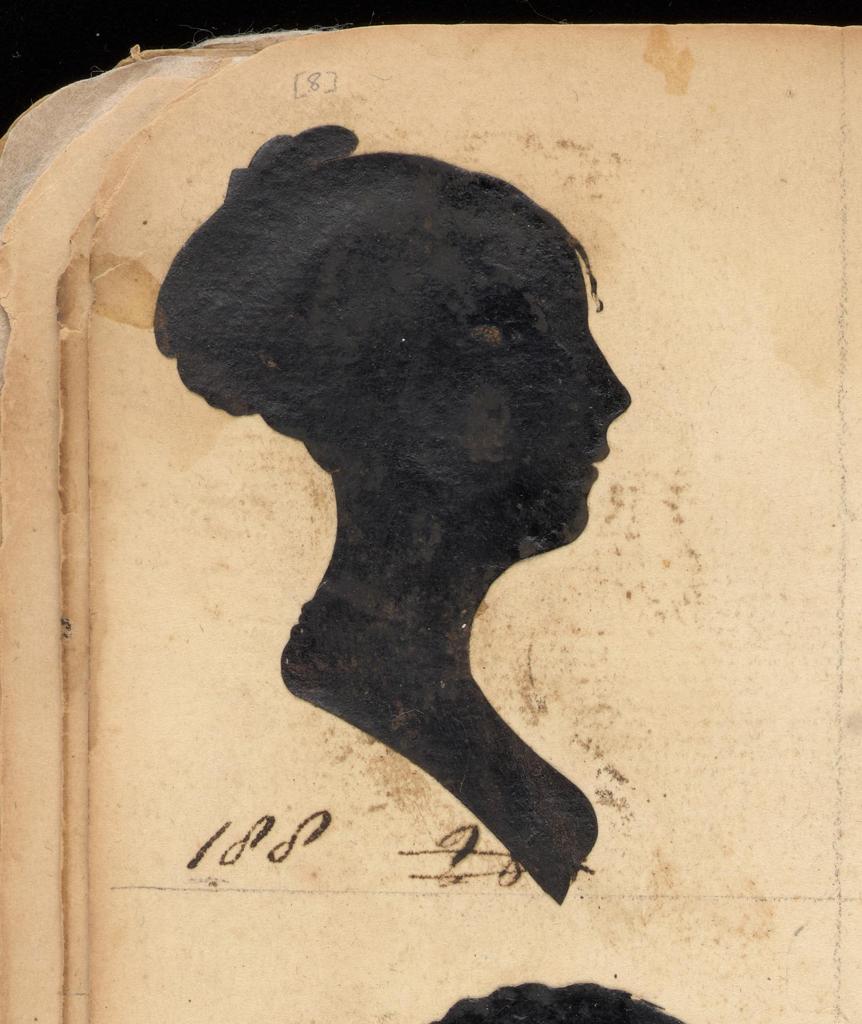 [8]
188